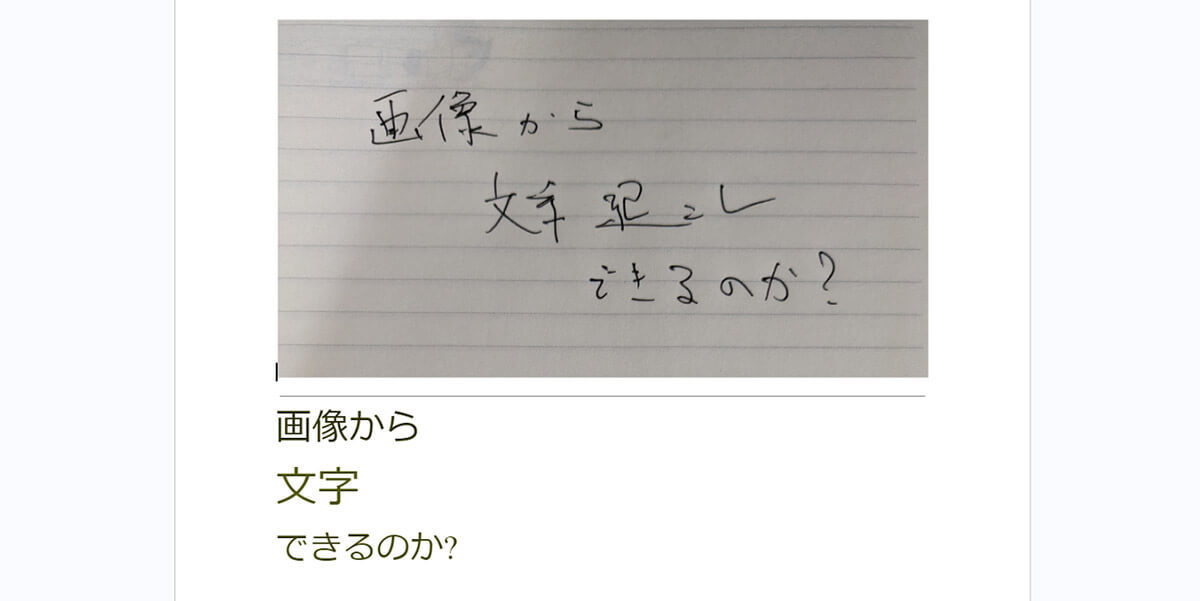 画像から
文字起こし
できるのか?
画像から
文字
できるのか?